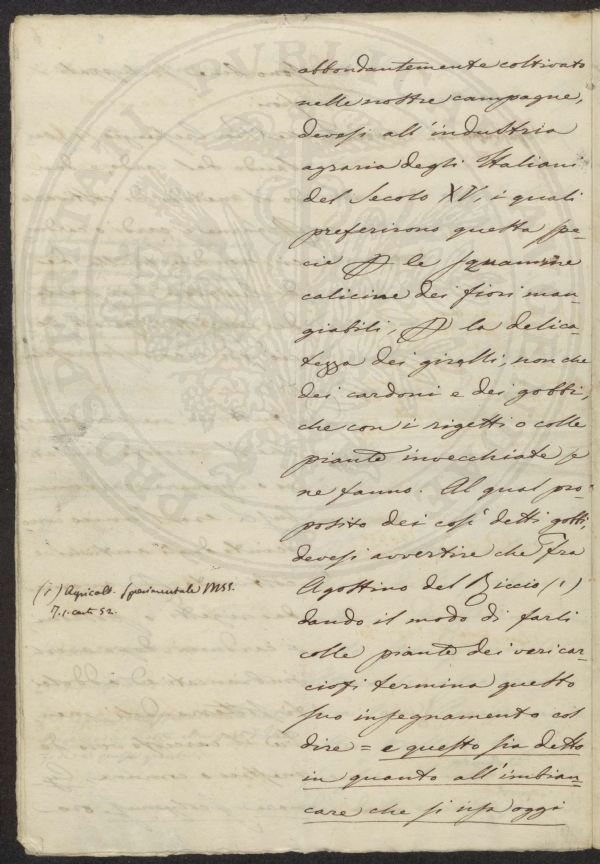 abbondantemente coltivato
nelle nostre campagne,
devesi all'industria
agraria degli Italiani
del Secolo XV, i quali
preferirono questa spe-
cie le squamme
calicine dei fiori man-
giabili, la delica-
tezza dei girelli, non che
dei cardoni e dei gobbi,
che con i rigetti o colle
piante invecchiate se
ne fanno. Al qual pro-
posito dei così detti gobbi,
devesi avvertire che Fra
Agostino del Riccio (1)
dando il modo di farli
colle piante dei veri car-
ciofi termina questo
suo insegnamento col
dire = e questo sia detto
in quanto all'imbian-
care che si usa oggi
(1) Agricolt. sperimentale MSS.
T. 1. carte 52.
PROSPERITATI PUBLICAE